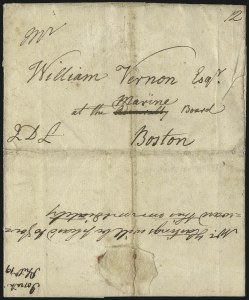 Mr
12
William Vernon Esqr.
Marine
at the Board
Boston
Mr Hastings will be pleased to for-
ward this immediately